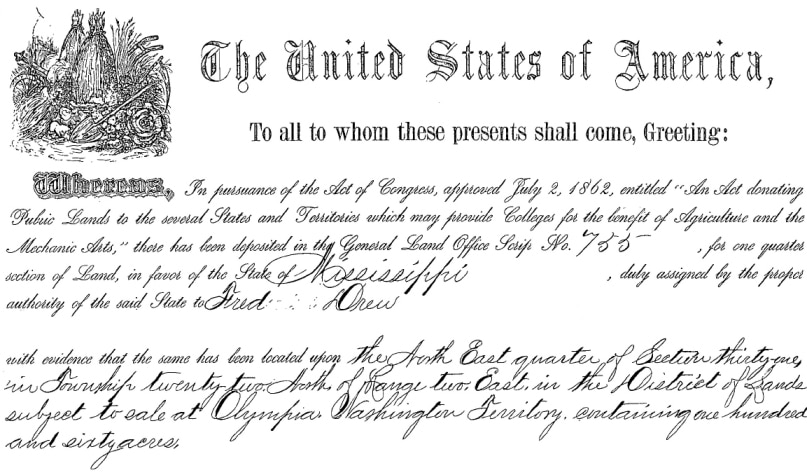 The United States of America,
To all to whom these presents shall come, Greeting:
Whereas, In pursuance of the Act of Congress, approved July 2, 1862, entitled "An Act donating
Public Lands to the several States and Territories which may provide Colleges for the benefit of Agriculture and the
Mechanic Arts," there has been deposited in the General Land Office Scrip No. 755 , for one quarter
section of Land, in favor of the State of Mississippi , duly assigned by the proper
authority of the said State to Fred Drew
with evidence that the same has been located upon the North East quarter of Section thirty-one,
in Township twenty-two North of Range two East in the District of Lands
subject to sale at Olympia Washington Territory, containing one hundred
and sixty acres,